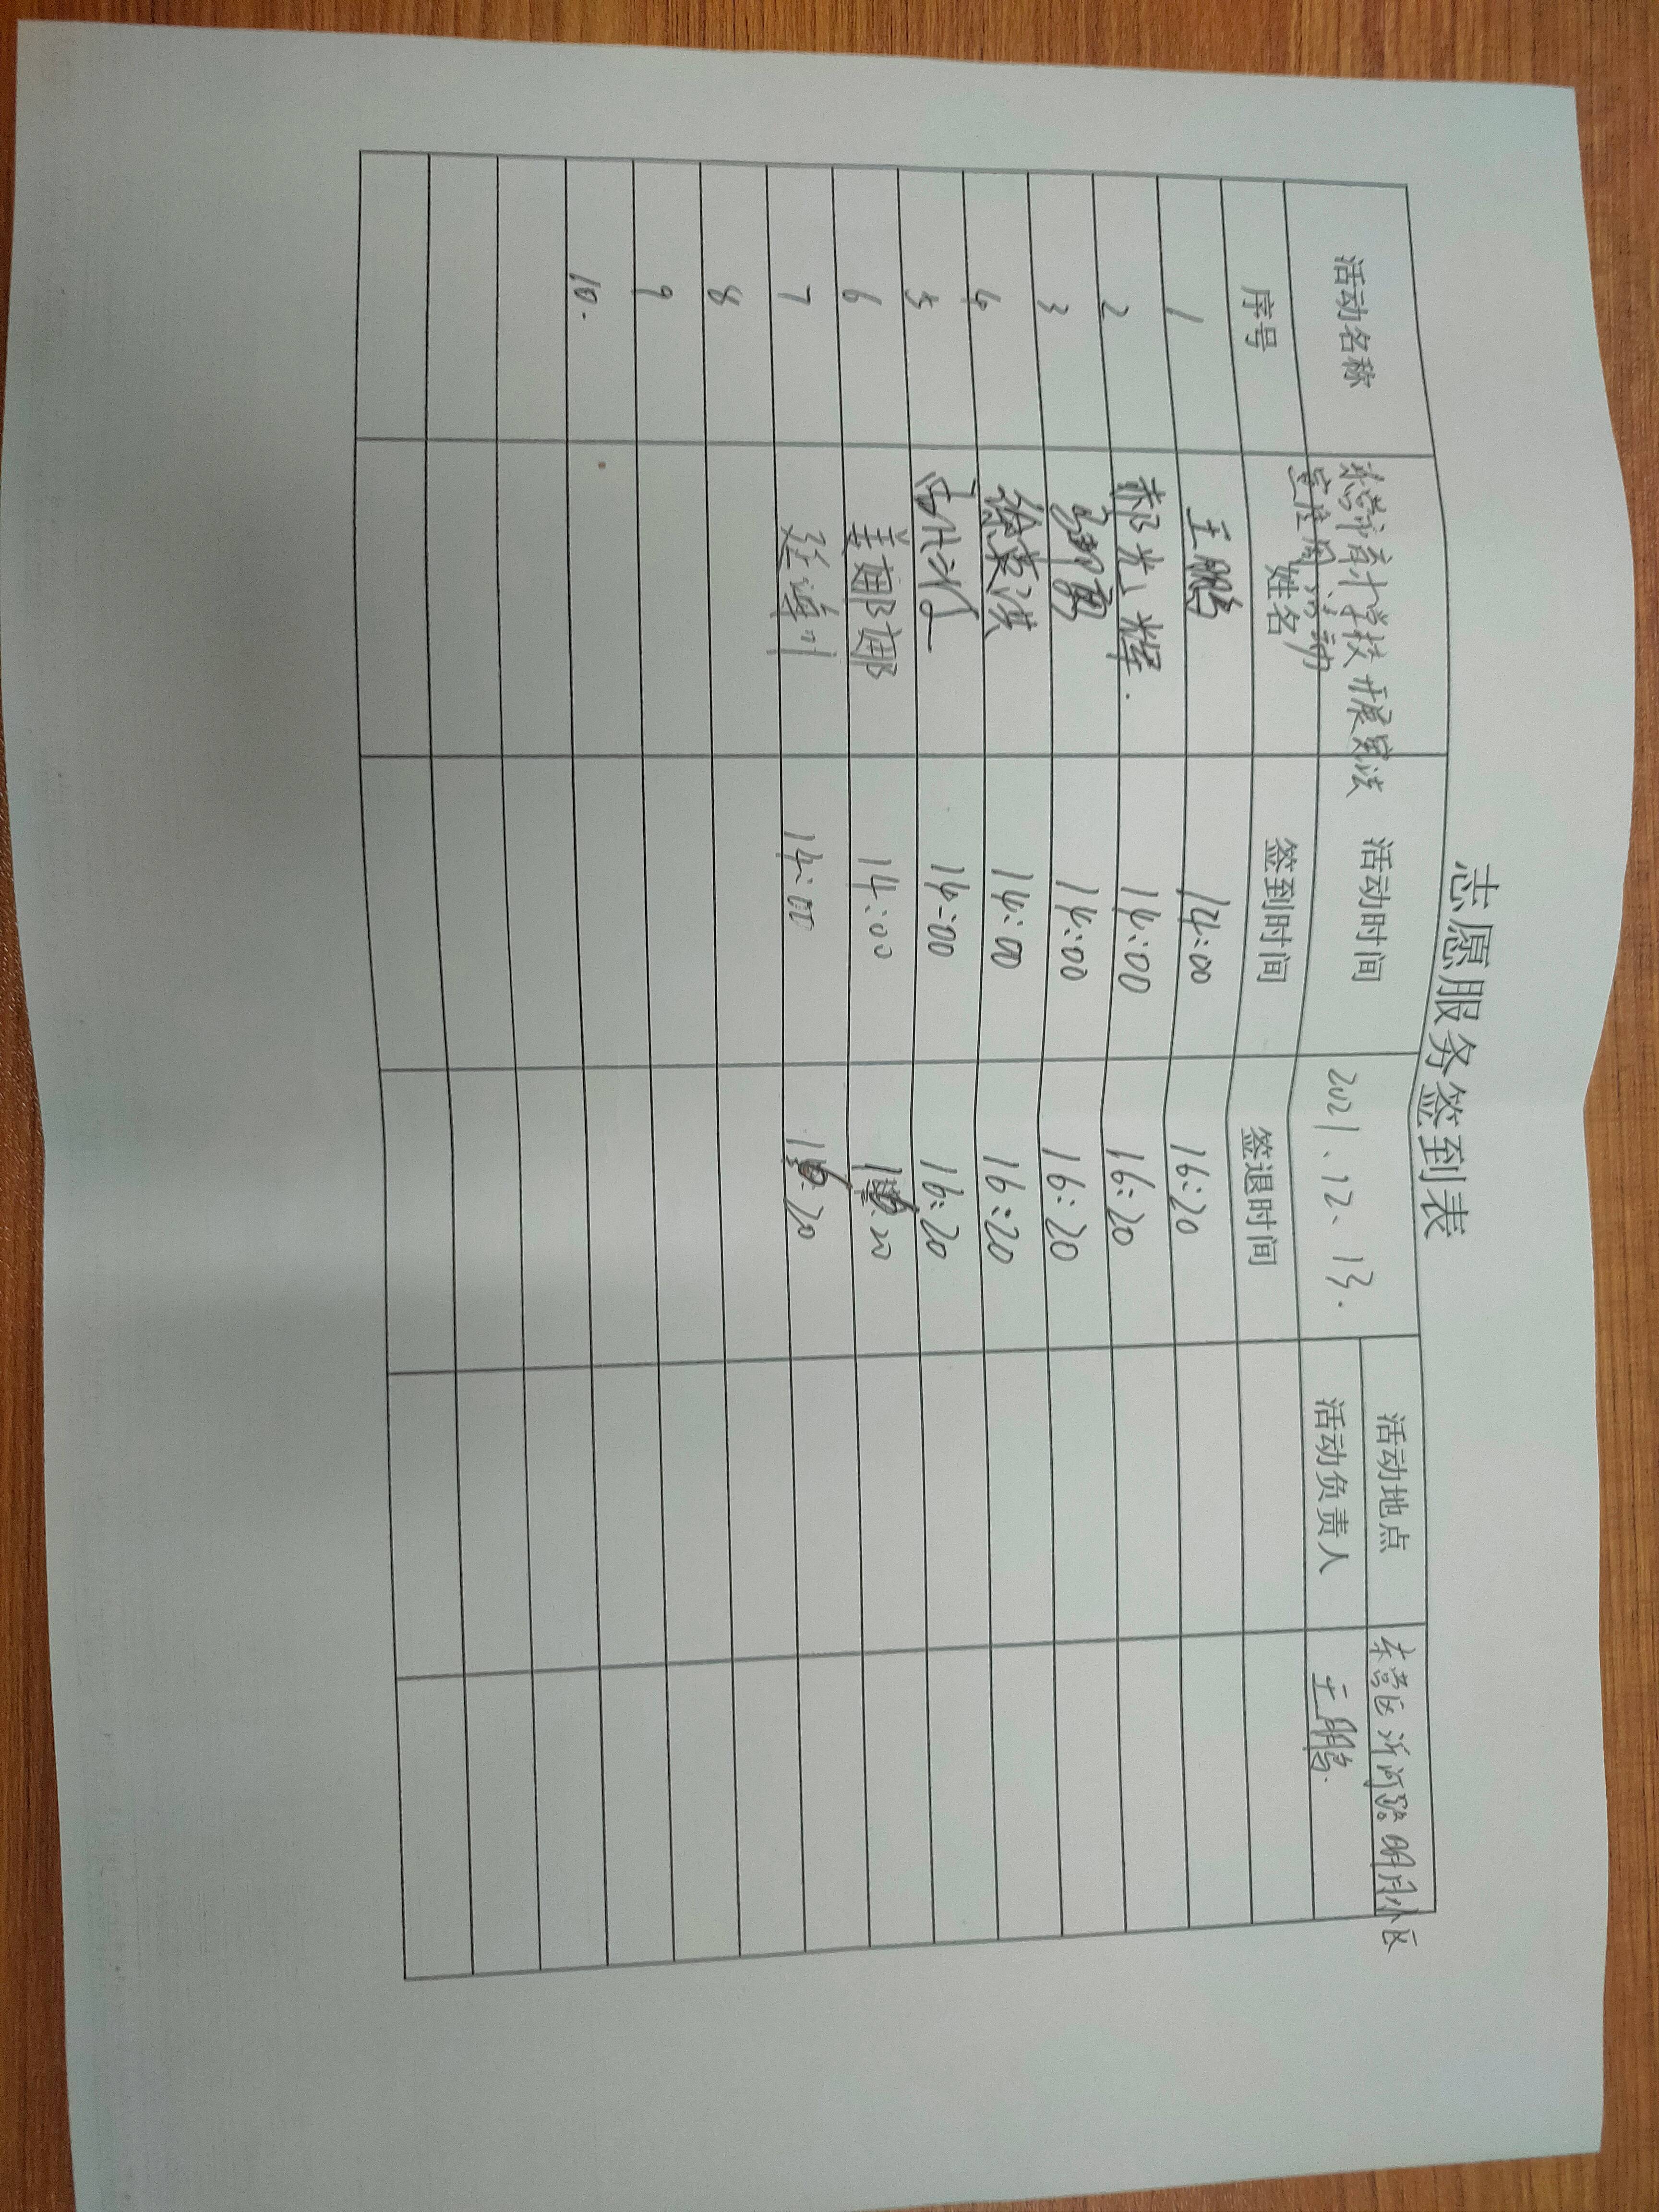 志愿服务签到表
活动名称 东营市育才学校开展宪法宣传周活动 活动时间 2021、12、13. 活动地点 东营区沂河路明月小区
活动负责人 王鹏.
序号 姓名 签到时间 签退时间
1 王鹏 14:00 16:20
2 郝光辉. 14:00 16:20
3 14:00 16:20
4 徐英洪 14:00 16:20
5 14:00 16:20
6 姜珊珊 14:00 16:20
7 14:00 16:20
8
9
10.